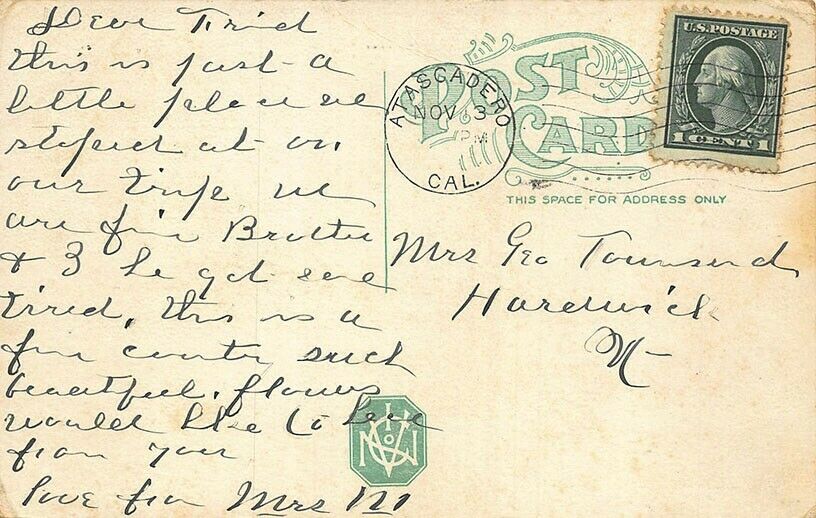 Dear Frind
this is just a
little place we
stoped at on
our trip we
are fine Brother
& 3 he got
tired, this is a
fine country such
beautiful, flowers
would like to hear
from you
love from Mrs M
POST
CARD
ATASCADERO
NOV 3
PM
CAL.
U.S. POSTAGE
1 CENT 1
THIS SPACE FOR ADDRESS ONLY
Mrs Geo Townsend
Hardwick